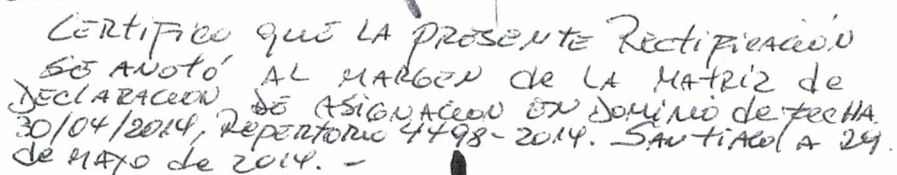 CERtiFico QUE LA PRESENTE Rectificación
SE ANOTÓ AL MARGEN de LA MATRIZ de
DECLARACION DE ASIGNACION EN DOMINIO de FECHA
30/04/2014, REPERTORIO 4498-2014. SANTIAGO A 29
de MAYO de 2014.-